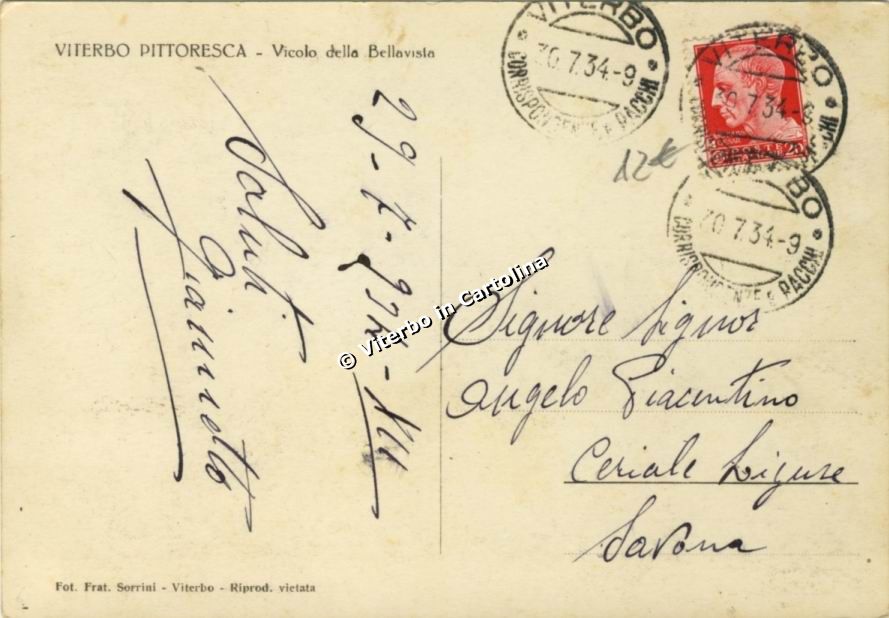 VITERBO PITTORESCA - Vicolo della Bellavista
VITERBO
30.7.34-9
CORRISPONDENZE E PACCHI
VITERBO
30.7.34-9
VITERBO
30.7.34-9
CORRISPONDENZE E PACCHI
20
12€
29-7-934-XII
Saluti
Giannetto
Signore Signor
Angelo Piacentino
Ceriale Ligure
Savona
© Viterbo in Cartolina
Fot. Frat. Sorrini - Viterbo - Riprod. vietata